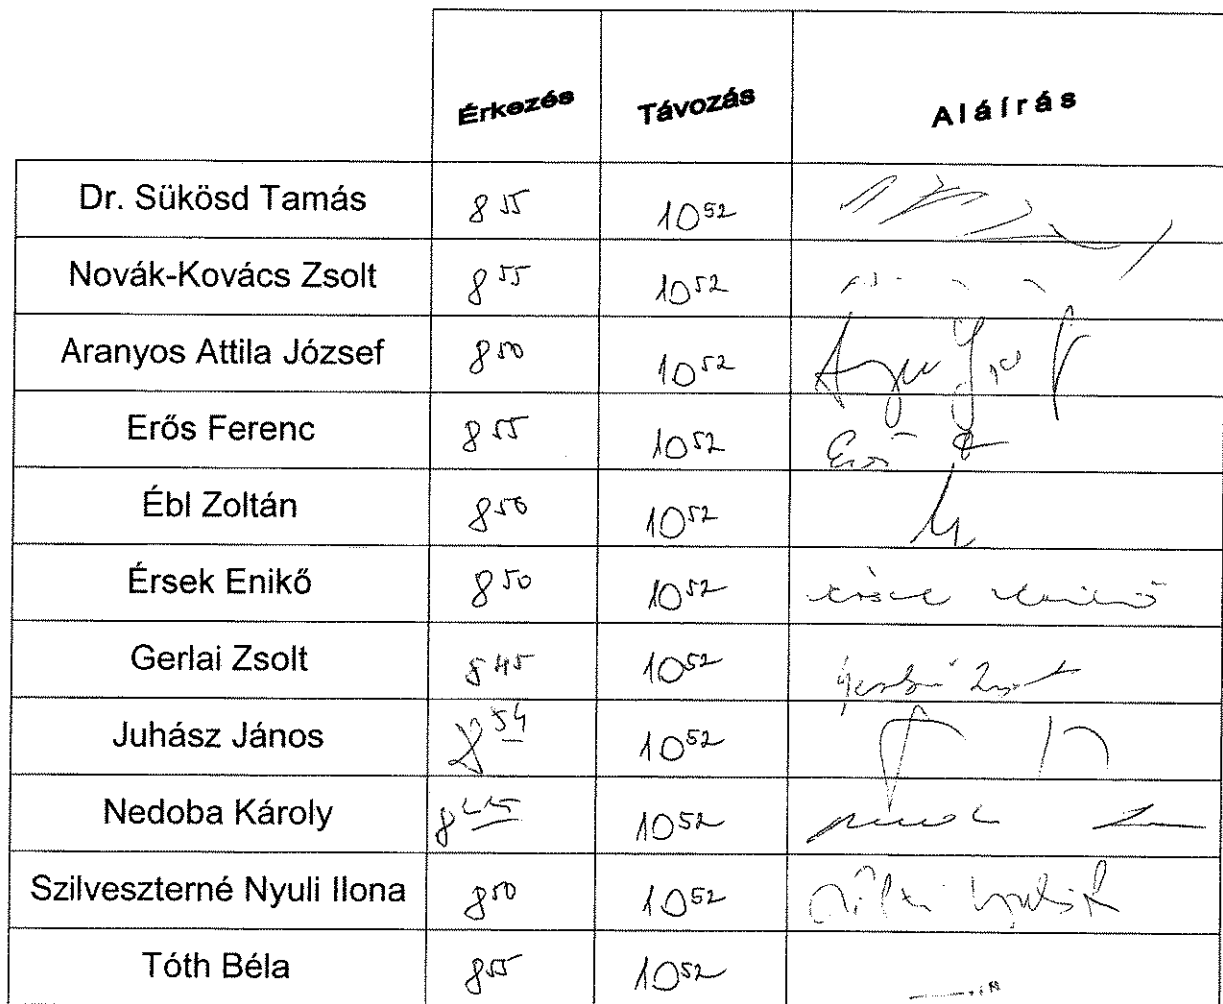 Érkezés Távozás Aláírás
Dr. Sükösd Tamás 8 55 10 52
Novák-Kovács Zsolt 8 55 10 52
Aranyos Attila József 8 50 10 52
Erős Ferenc 8 55 10 52 Erős F
Ébl Zoltán 8 50 10 52
Érsek Enikő 8 50 10 52 Érsek Enikő
Gerlai Zsolt 8 45 10 52 Gerlai Zsolt
Juhász János 8 54 10 52
Nedoba Károly 8 45 10 52
Szilveszterné Nyuli Ilona 8 50 10 52
Tóth Béla 8 55 10 52